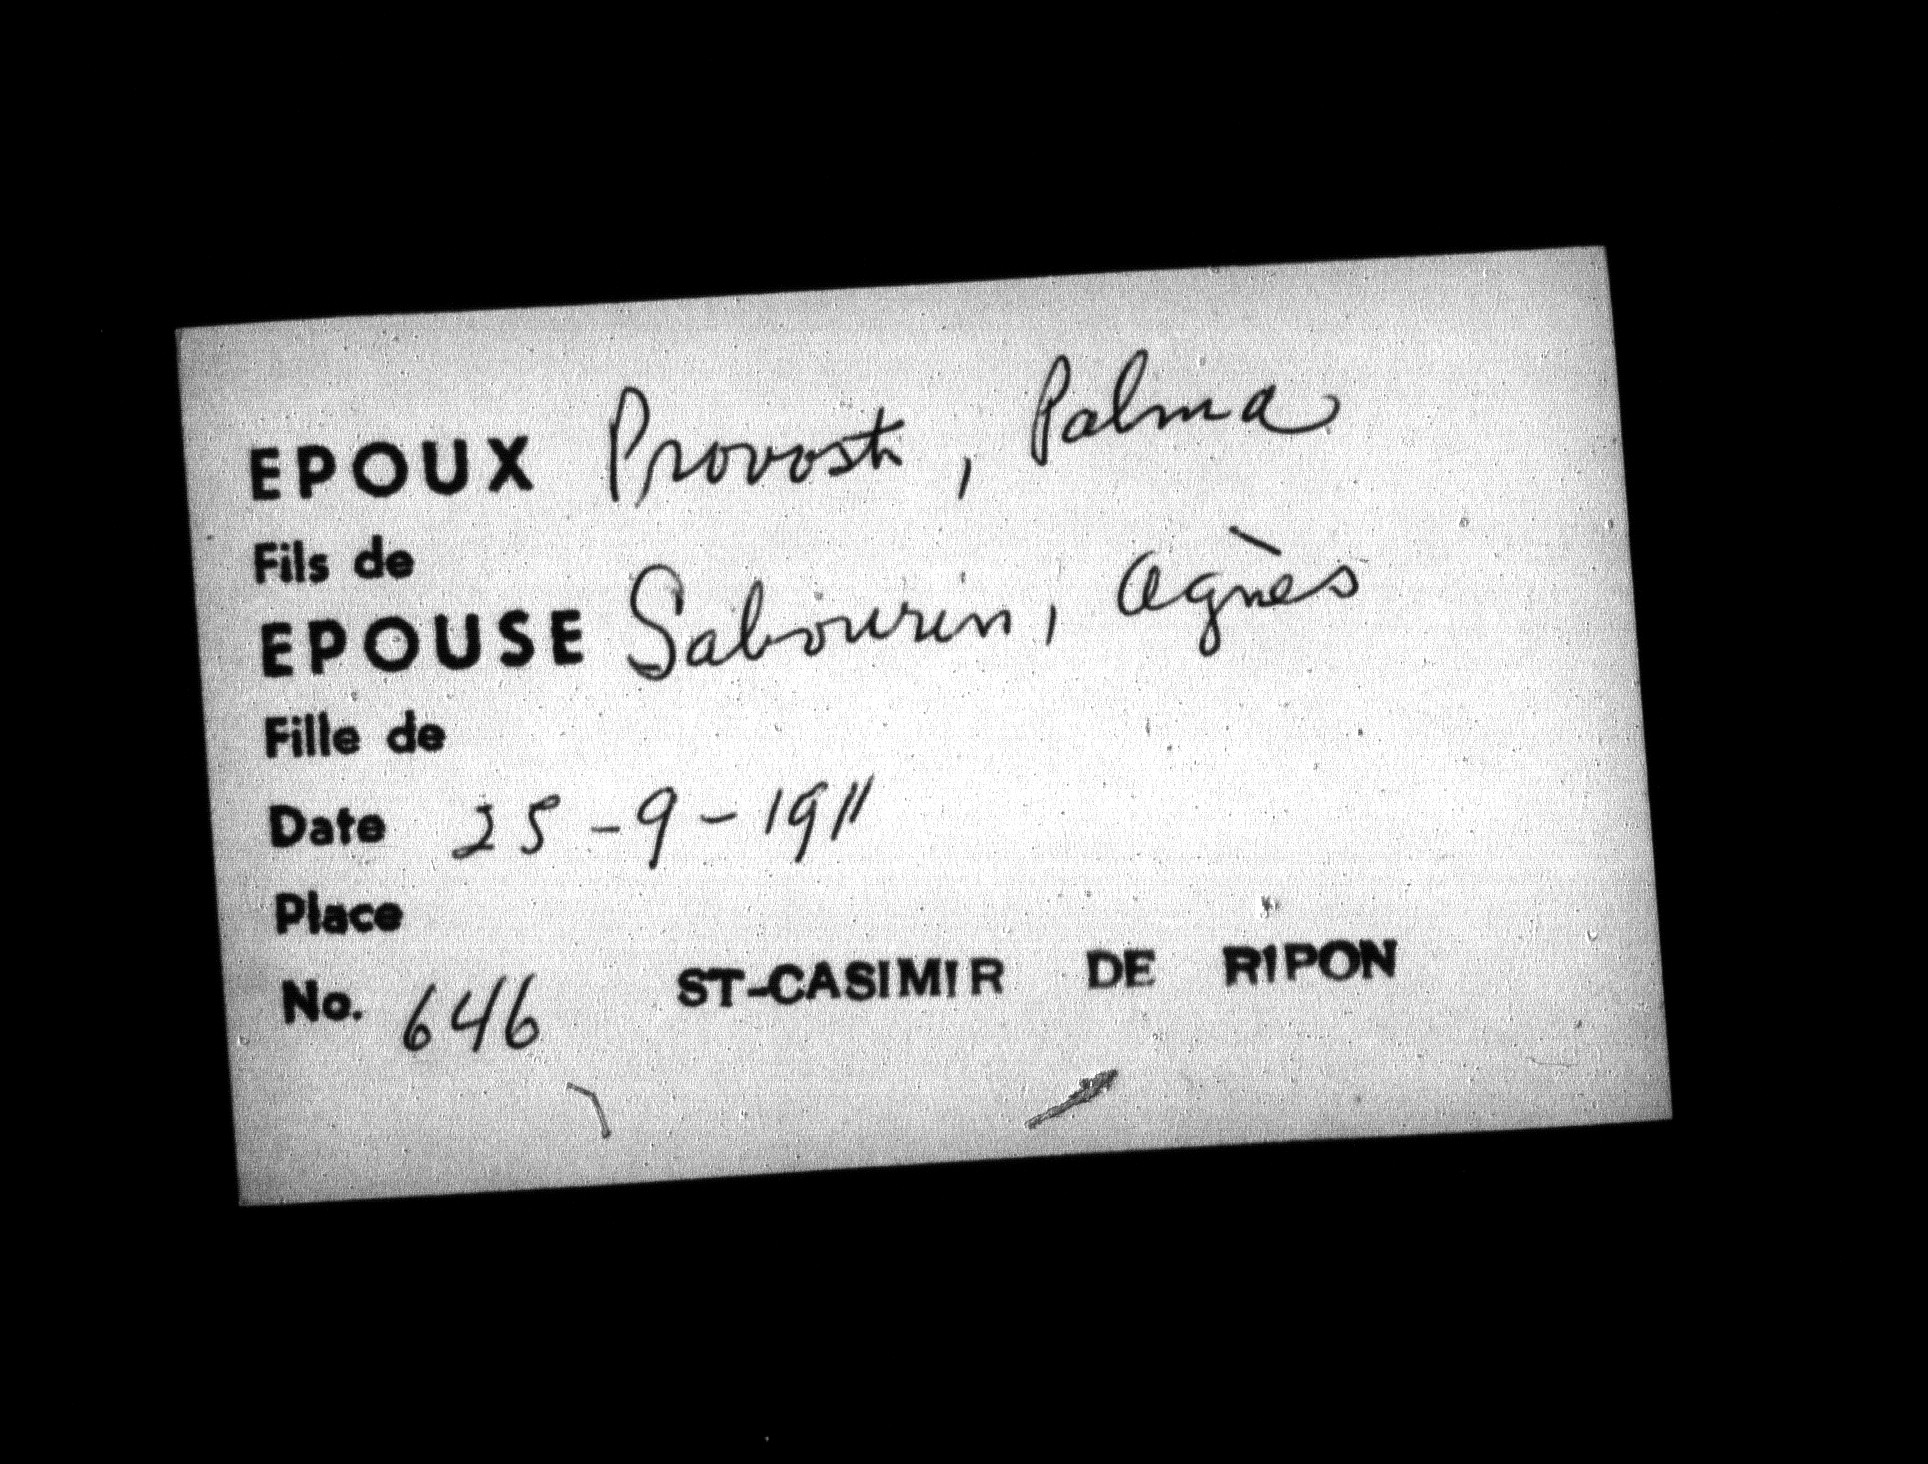 EPOUX Provost, Palma
Fils de
EPOUSE Sabourin, Agnès
Fille de
Date 25-9-1911
Place
ST-CASIMIR DE RIPON
No. 646